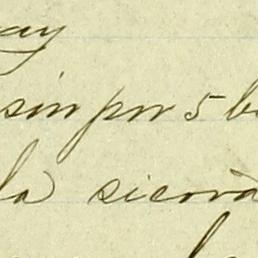 ay
sin por 5 b
la sicorà